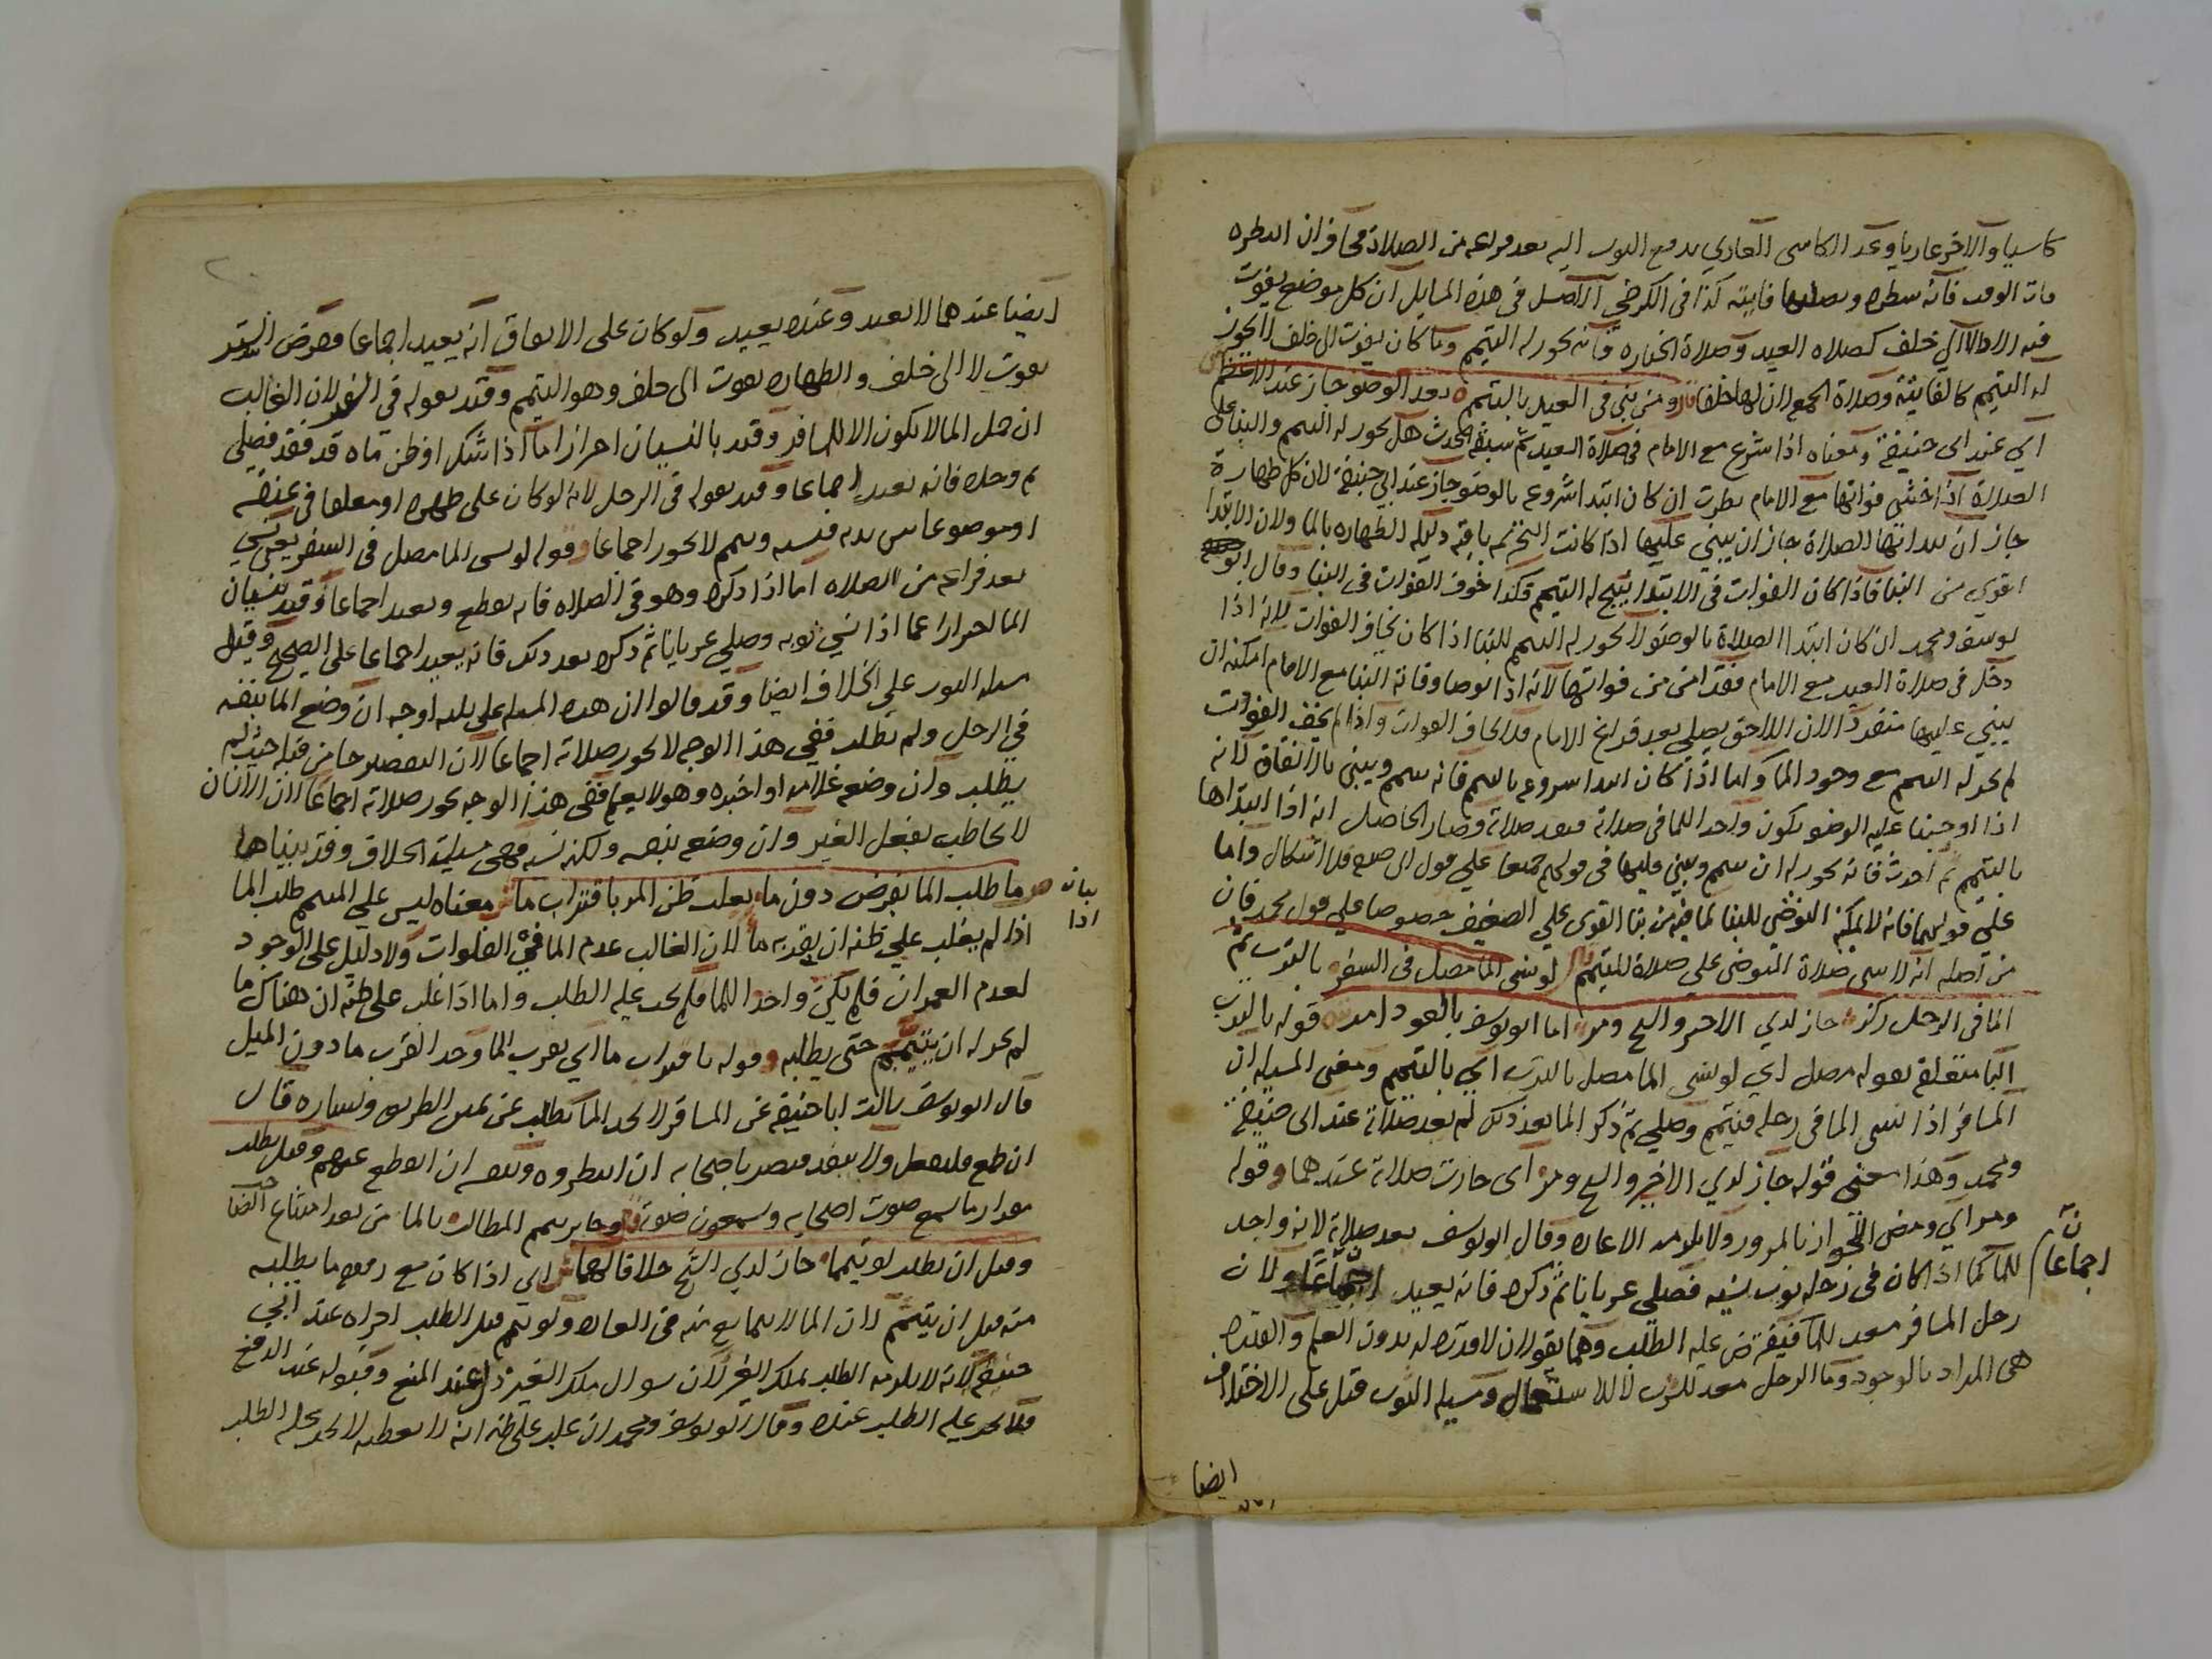 كاسيا والاخر عاريا وعد الكاسى العاري بدفع الثوب اليه بعد فراغه من الصلاة فخاف ان انتظره
فات الوقت فانه ينتظره ويصليها فايته كذا فى الكرخى الاصل فى هذه المسايل ان كل موضع يفوت
فيه الادا لا الي خلف كصلاه العيد وصلاة الجنازه فانه يجوز له التيمم وما كان يفوت الى خلف لا يجوز
له التيمم كالفايتة وصلاة الجمعة لان لها خلفا ومن بنى فى العيد بالتيمم بعد الوضو جاز عند الاعظم
اي عند ابى حنيفة ومعناه اذا شرع مع الامام فى صلاة العيد ثم سبقه الحدث هل يجوز له التيمم والبنا على
الصلاة اذا خشى فواتها مع الامام نظرت ان كان ابتدا شروعه بالوضو جاز عند ابي حنيفة لان كل طهارة
جاز ان يبدا بها الصلاة جاز ان يبني عليها اذا كانت التحريمه باقية دليله الطهاره بالما ولان الابتدا
اقوي من البنا فاذا كان الفوات فى الابتدا يبيح له التيمم فكذا خوف الفوات فى البنا وقال ابو
يوسف ومحمد ان كان ابتدا الصلاة بالوضو لا يجوز له التيمم للبنا اذا كان يخاف الفوات لانه اذا
دخل فى صلاة العيد مع الامام فقد امن من فواتها لانه اذا توضا وفاته البنا مع الامام امكنه ان
يبني عليها منفردا لان اللاحق يصلي بعد فراغ الامام فلا يخاف الفوات واذا لم يخف الفوات
لم يجز له التيمم مع وجود الما واما اذا كان ابتدا شروعه بالتيمم فانه يتيمم ويبنى بالاتفاق لانه
اذا اوجبنا عليه الوضو يكون واجدا للما فى صلاته فتفسد صلاته وصار الحاصل انه اذا ابتداها
بالتيمم ثم احدث فانه يجوز له ان يتيمم ويبني عليها فى قولهم جميعا علي قول ابى حنيفة فلا اشكال واما
على قولهما فانه لا يمكنه التوضى للبنا لما فيه من بنا القوى علي الضعيف خصوصا علي قول محمد فان
من اصله انه لا يبنى صلاة المتوضى على صلاة المتيمم لو نسى الما مصل فى السفر بالترب ثم
الما فى الرحل ذكر جاز لدي الاخير والشيخ ومر اما ابو يوسف بالعود امر قوله بالترب
البا متعلق بقوله مصل اي لو نسى الما مصل بالترب اي بالتيمم ومعنى المسيله ان
المسافر اذا نسى الما فى رحله فتيمم وصلي ثم ذكر الما بعد ذلك لم يعد صلاته عند ابى حنيفة
ومحمد وهذا معنى قوله جاز لدي الاخير والشيخ ومر اى جازت صلاته عندهما وقوله
ومر اي ومضى الجواز بالمرور ولا يلزمه الاعاده وقال ابو يوسف يعد صلاته لانه واجد
للما كما اذا كان فى رحله ثوب نسيه فصلى عريانا ثم ذكره فانه يعيد ولان
رحل المسافر معد للما فيفترض عليه الطلب وهما يقولان لا قدرة له بدون العلم والقدرة
هى المراد بالوجود وما الرحل معد للشرب لا للاستعمال ومسيلة الثوب قيل على الاختلاف
اجماعا
ايضا
ايضا عندهما لا يعيد وعنده يعيد ولو كان على الاتفاق انه يعيد اجماعا ففرض الستر
يفوت لا الى خلف والطهاره يفوت الى خلف وهو التيمم وقيد بقوله في السفر لان الغالب
ان حمل الما لا يكون الا للمسافر وقيد بالنسيان احترازا اما اذا شك او ظن ماه قد نفد فصلى
ثم وجده فانه يعيد اجماعا وقيد بقوله فى الرحل لانه لو كان على ظهره او معلقا فى عنقه
او موضوعا بين يديه فنسيه وتيمم لا يجوز اجماعا وقوله لو نسى الما مصل فى السفر يعنى نسي
بعد فراغه من الصلاه اما اذا ذكره وهو فى الصلاه فانه يقطع ويعيد اجماعا وقيد بنسيان
الما احترازا عما اذا نسي ثوبه وصلي عريانا ثم ذكره بعد ذلك فانه يعيد اجماعا على الصحيح وقيل
مسيلة الثوب علي الخلاف ايضا وقد قالوا ان هذه المسيله على ثلثه اوجه ان وضع الما بنفسه
فى الرحل ولم يطلب ففي هذا الوجه لا يجوز صلاته اجماعا لان التقصير جا من قبله حيث لم
يطلب وان وضعه غلامه او اجيره وهو لا يعلم ففى هذا الوجه يجوز صلاته اجماعا لان الانسان
لا يخاطب بفعل الغير وان وضعه بنفسه ولكنه نسيه فهى مسيلة الخلاف وقد بيناها
وما طلب الما بفرض دون ما يغلب ظن المر باقتراب ما معناه ليس علي المتيمم طلب الما
اذا لم يغلب علي ظنه ان بقربه ما لان الغالب عدم الما في الفلوات ولا دليل على الوجود
لعدم العمران فلم يكن واجدا للما فلم يجب عليه الطلب واما اذا غلب على ظنه ان هناك ما
لم يجز له ان يتيمم حتى يطلبه وقوله باقتراب ما اي بقرب الما وحد القرب ما دون الميل
قال ابو يوسف سالت ابا حنيفة عن المسافر لا يجد الما يطلب عن يمين الطريق ويساره قال
ان طمع فليفعل ولا يبعد فيضر باصحابه ان انتظروه وبنفسه ان انقطع عنهم وقيل يطلب
مقدار ما يسمع صوت اصحابه ويسمعون صوته وجايز تيمم المطالب بالما من بعد امتناع الصاحب
وقبل ان يطلب لو تيمما جاز لدي الشيخ خلافا لهما اي اذا كان مع رفيقه ما يطلبه
منه قبل ان يتيمم لان الما لا يمانع منه فى العاده ولو تيمم قبل الطلب اجزاه عند ابي
حنيفة لانه لا يلزمه الطلب لملك الغير لان سوال ملك الغير ذل عند المنع وقبوله عند الدفع
فلا يجب عليه الطلب عنده وقال ابو يوسف ومحمد ان غلب على ظنه انه لا يعطيه لا يجب عليه الطلب
بيانه
اذا